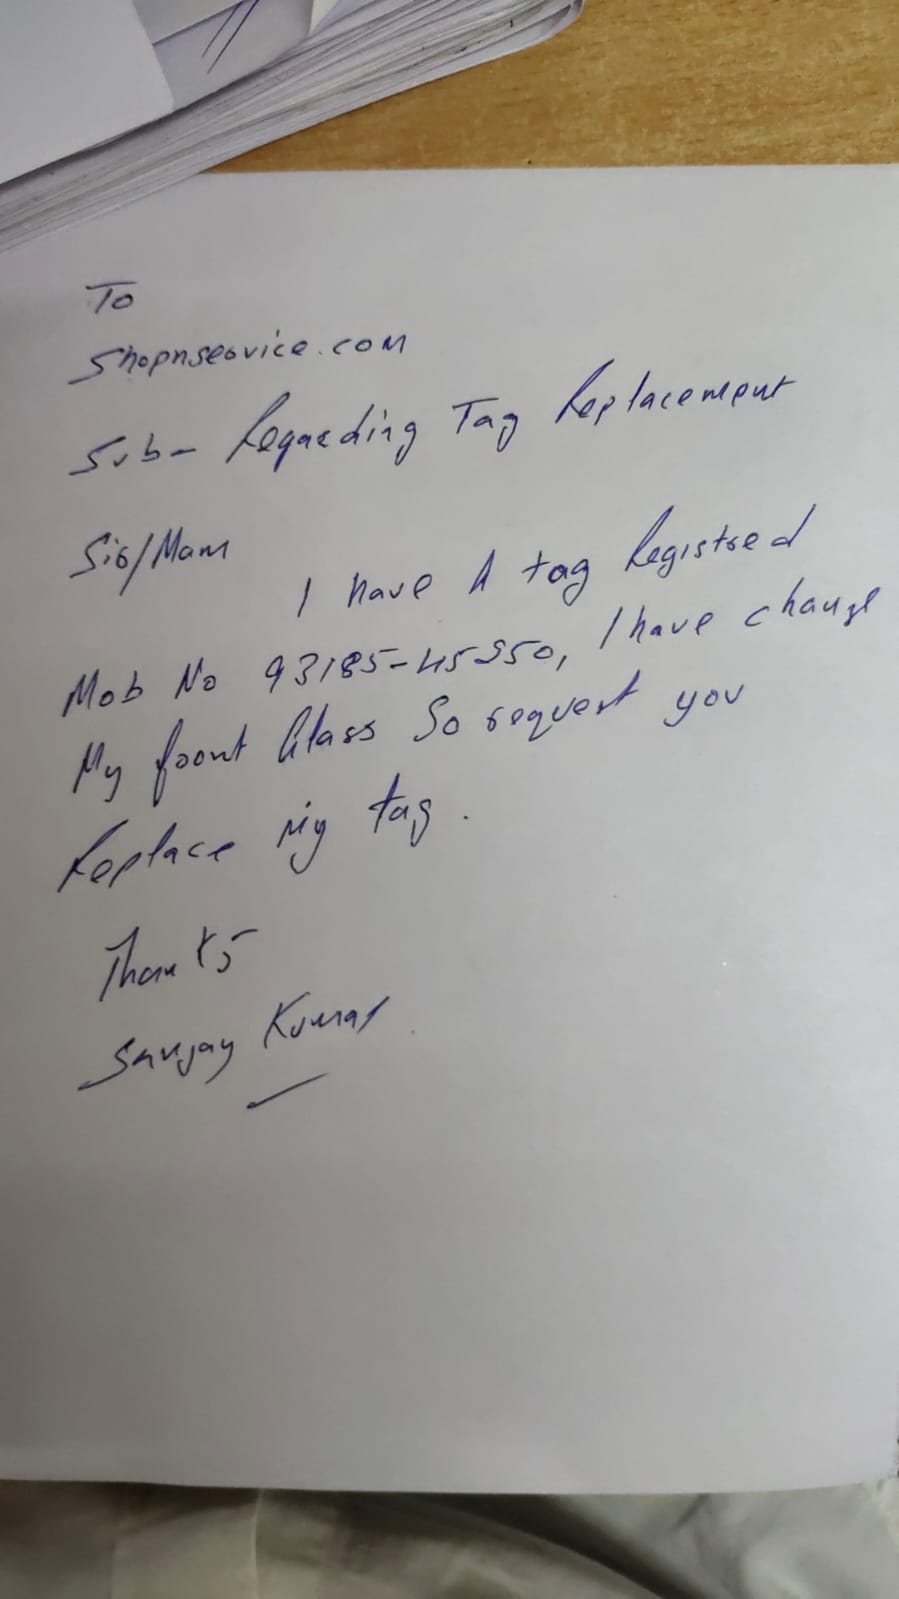 To
Shopnservice.com
Sub- Regarding Tag Replacement
Sir/Mam
I have A tag Registred
Mob No 93185-45550, I have change
My front Glass So request you
Replace My tag.
Thanks
Sanjay Kumar